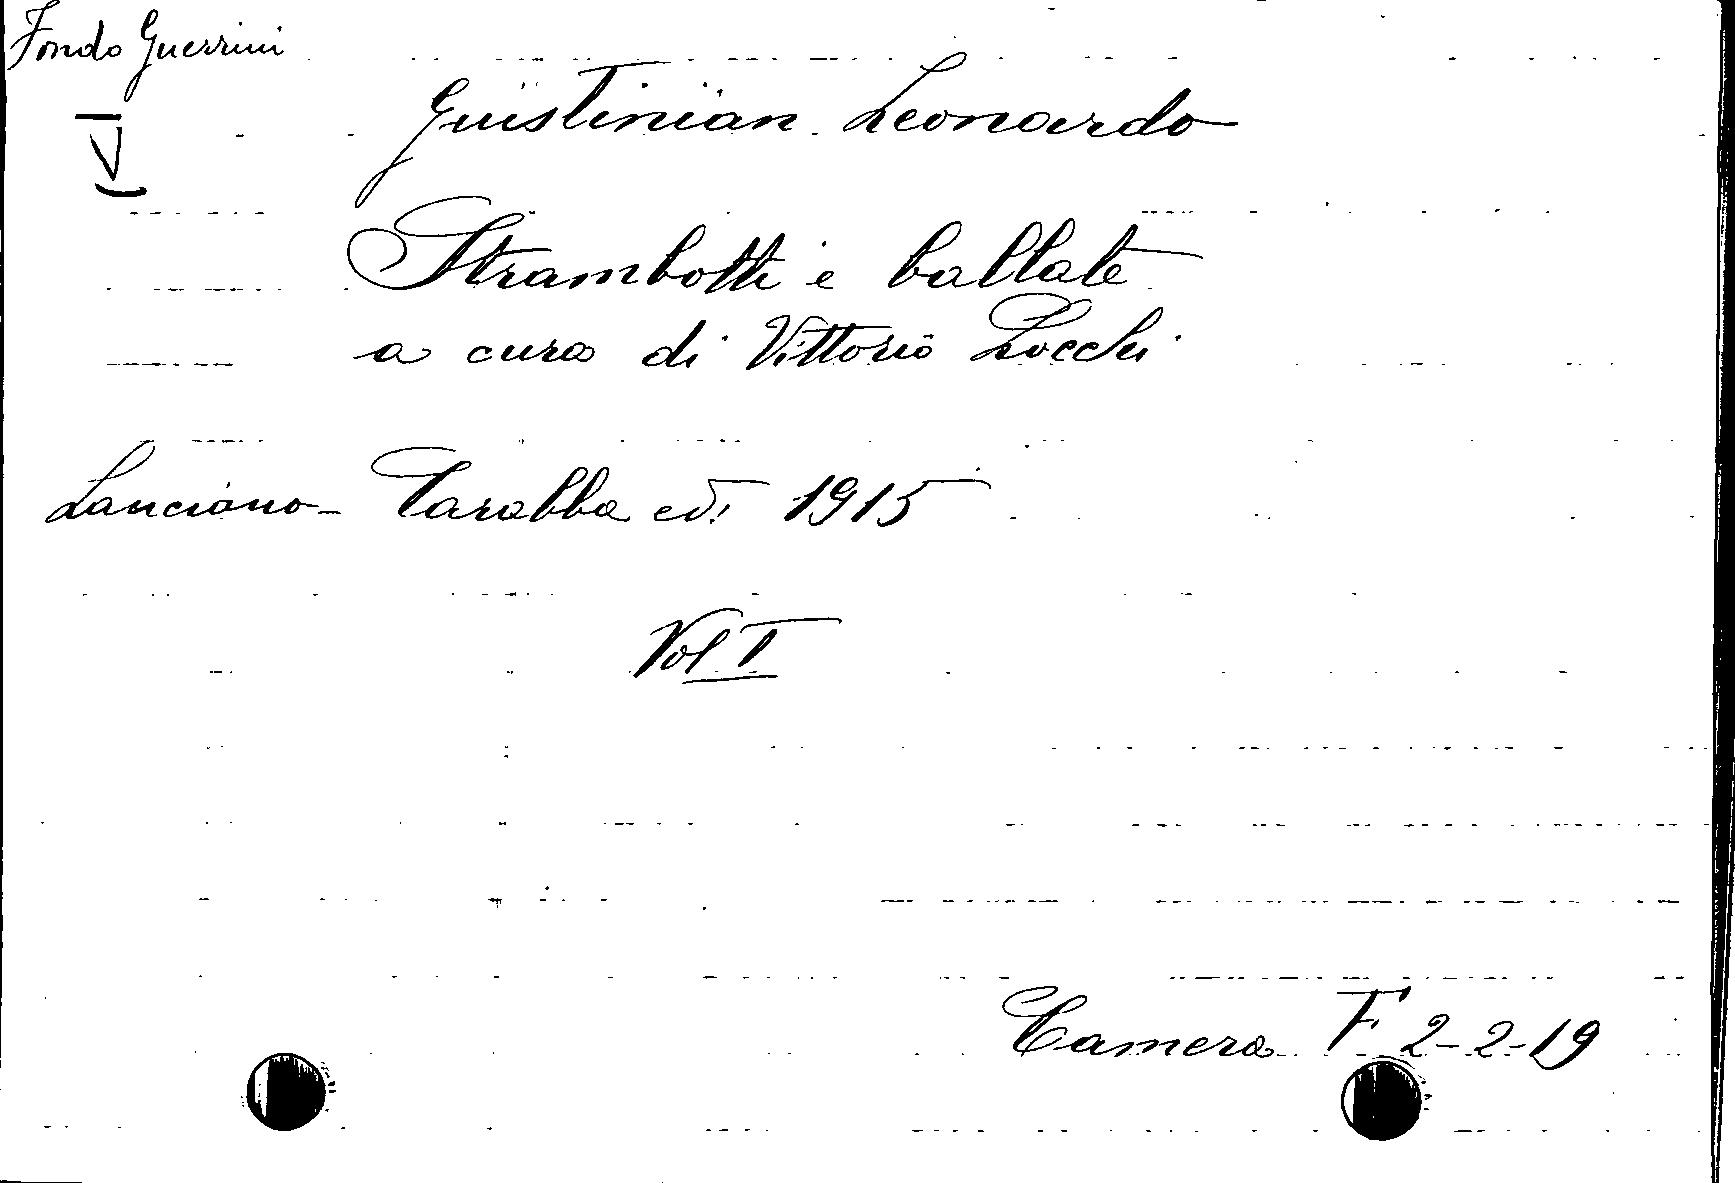 Fondo Guerrini
Giustinian Leonardo
Strambotti e ballate
a cura di Vittorio Locchi
Lanciano - Carabba ed. 1915
Vol I
Camera F 2-2-19